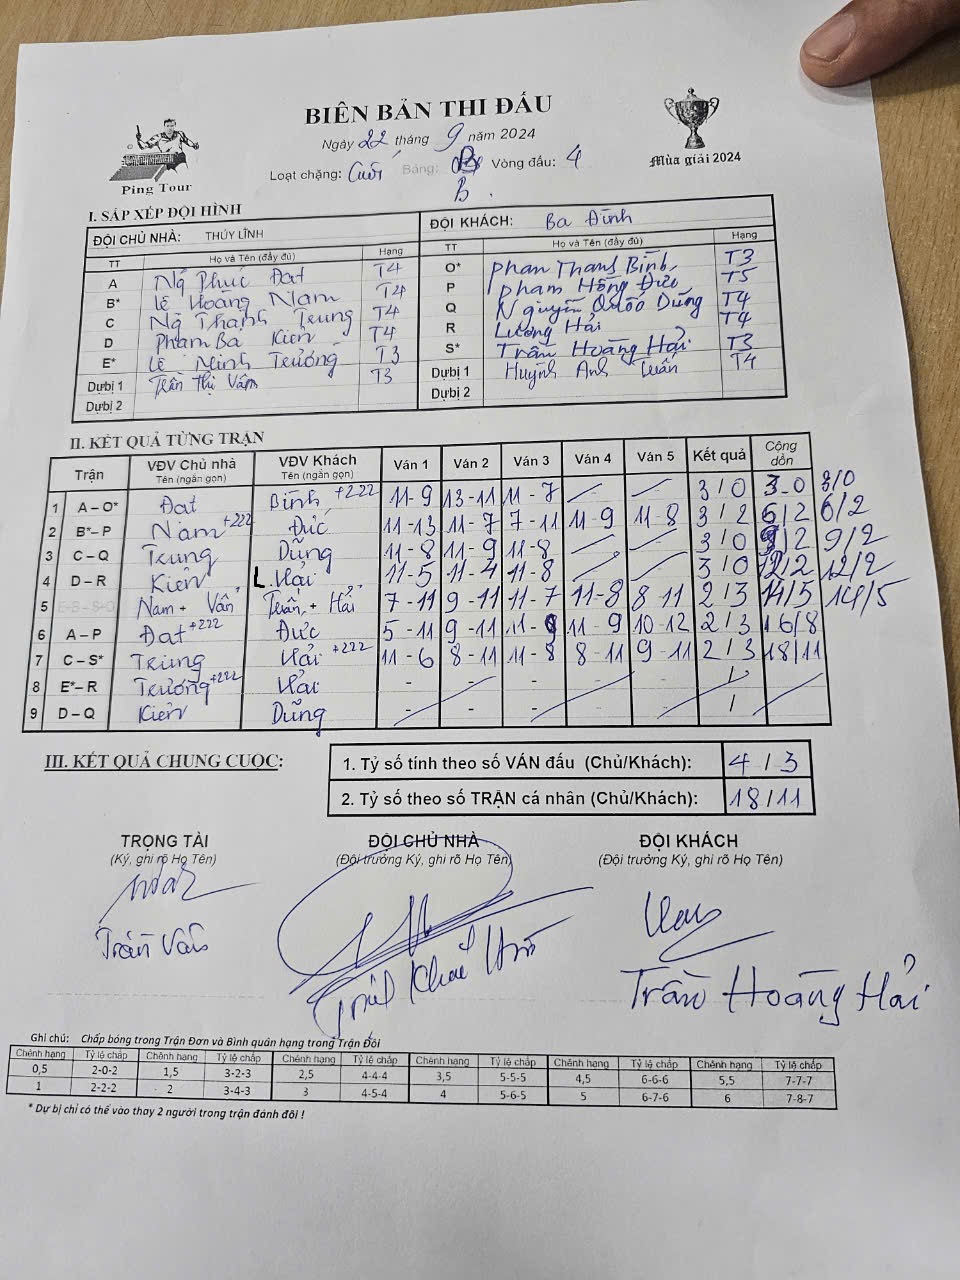 BIÊN BẢN THI ĐẤU
Ngày 22 tháng 9 năm 2024
Loạt chặng: Cuối Bảng: B Vòng đấu: 4
B.
Ping Tour
Mùa giải 2024
I. SẮP XẾP ĐỘI HÌNH
ĐỘI CHỦ NHÀ: THÚY LĨNH ĐỘI KHÁCH: Ba Đình
TT Họ và Tên (đầy đủ) Hạng TT Họ và Tên (đầy đủ) Hạng
A Ng Phúc Đạt T4 O* Phan Thanh Bình T3
B* Lê Hoàng Nam T4 P Phạm Hồng Đức T5
C Ng Thanh Trung T4 Q Nguyễn Quốc Dũng T4
D Phạm Ba Kiên T4 R Lương Hải T4
E* Lê Minh Trường T3 S* Trần Hoàng Hải T3
Dự bị 1 Trần Thị Vân T3 Dự bị 1 Huỳnh Anh Tuấn T4
Dự bị 2 Dự bị 2
II. KẾT QUẢ TỪNG TRẬN
Trận VĐV Chủ nhà Tên (ngắn gọn) VĐV Khách Tên (ngắn gọn) Ván 1 Ván 2 Ván 3 Ván 4 Ván 5 Kết quả Cộng dồn
1 A – O* Đạt Bình +222 11-9 13-11 11-7 3/0 3-0 3/0
2 B*– P Nam +222 Đức 11-13 11-7 7-11 11-9 11-8 3/2 6/2 6/2
3 C – Q Trung Dũng 11-8 11-9 11-8 3/0 9/2 9/2
4 D – R Kiên L. Hải 11-5 11-4 11-8 3/0 12/2 12/2
5 Nam + Vân Tuấn + Hải 7-11 9-11 11-7 11-8 8-11 2/3 14/5 14/5
6 A – P Đạt +222 Đức 5-11 9-11 11-9 11-9 10-12 2/3 16/8
7 C – S* Trung Hải +222 11-6 8-11 11-8 8-11 9-11 2/3 18/11
8 E*– R Trường +222 Hải - - - - - /
9 D – Q Kiên Dũng - - - - - /
III. KẾT QUẢ CHUNG CUỘC:
1. Tỷ số tính theo số VÁN đấu (Chủ/Khách): 4/3
2. Tỷ số theo số TRẬN cá nhân (Chủ/Khách): 18/11
TRỌNG TÀI ĐỘI CHỦ NHÀ ĐỘI KHÁCH
(Ký, ghi rõ Họ Tên) (Đội trưởng Ký, ghi rõ Họ Tên) (Đội trưởng Ký, ghi rõ Họ Tên)
Trần Vân
Trần Hoàng Hải
Ghi chú: Chấp bóng trong Trận Đơn và Bình quân hạng trong Trận Đôi
Chênh hạng Tỷ lệ chấp Chênh hạng Tỷ lệ chấp Chênh hạng Tỷ lệ chấp Chênh hạng Tỷ lệ chấp Chênh hạng Tỷ lệ chấp Chênh hạng Tỷ lệ chấp
0,5 2-0-2 1,5 3-2-3 2,5 4-4-4 3,5 5-5-5 4,5 6-6-6 5,5 7-7-7
1 2-2-2 2 3-4-3 3 4-5-4 4 5-6-5 5 6-7-6 6 7-8-7
* Dự bị chỉ có thể vào thay 2 người trong trận đánh đôi !